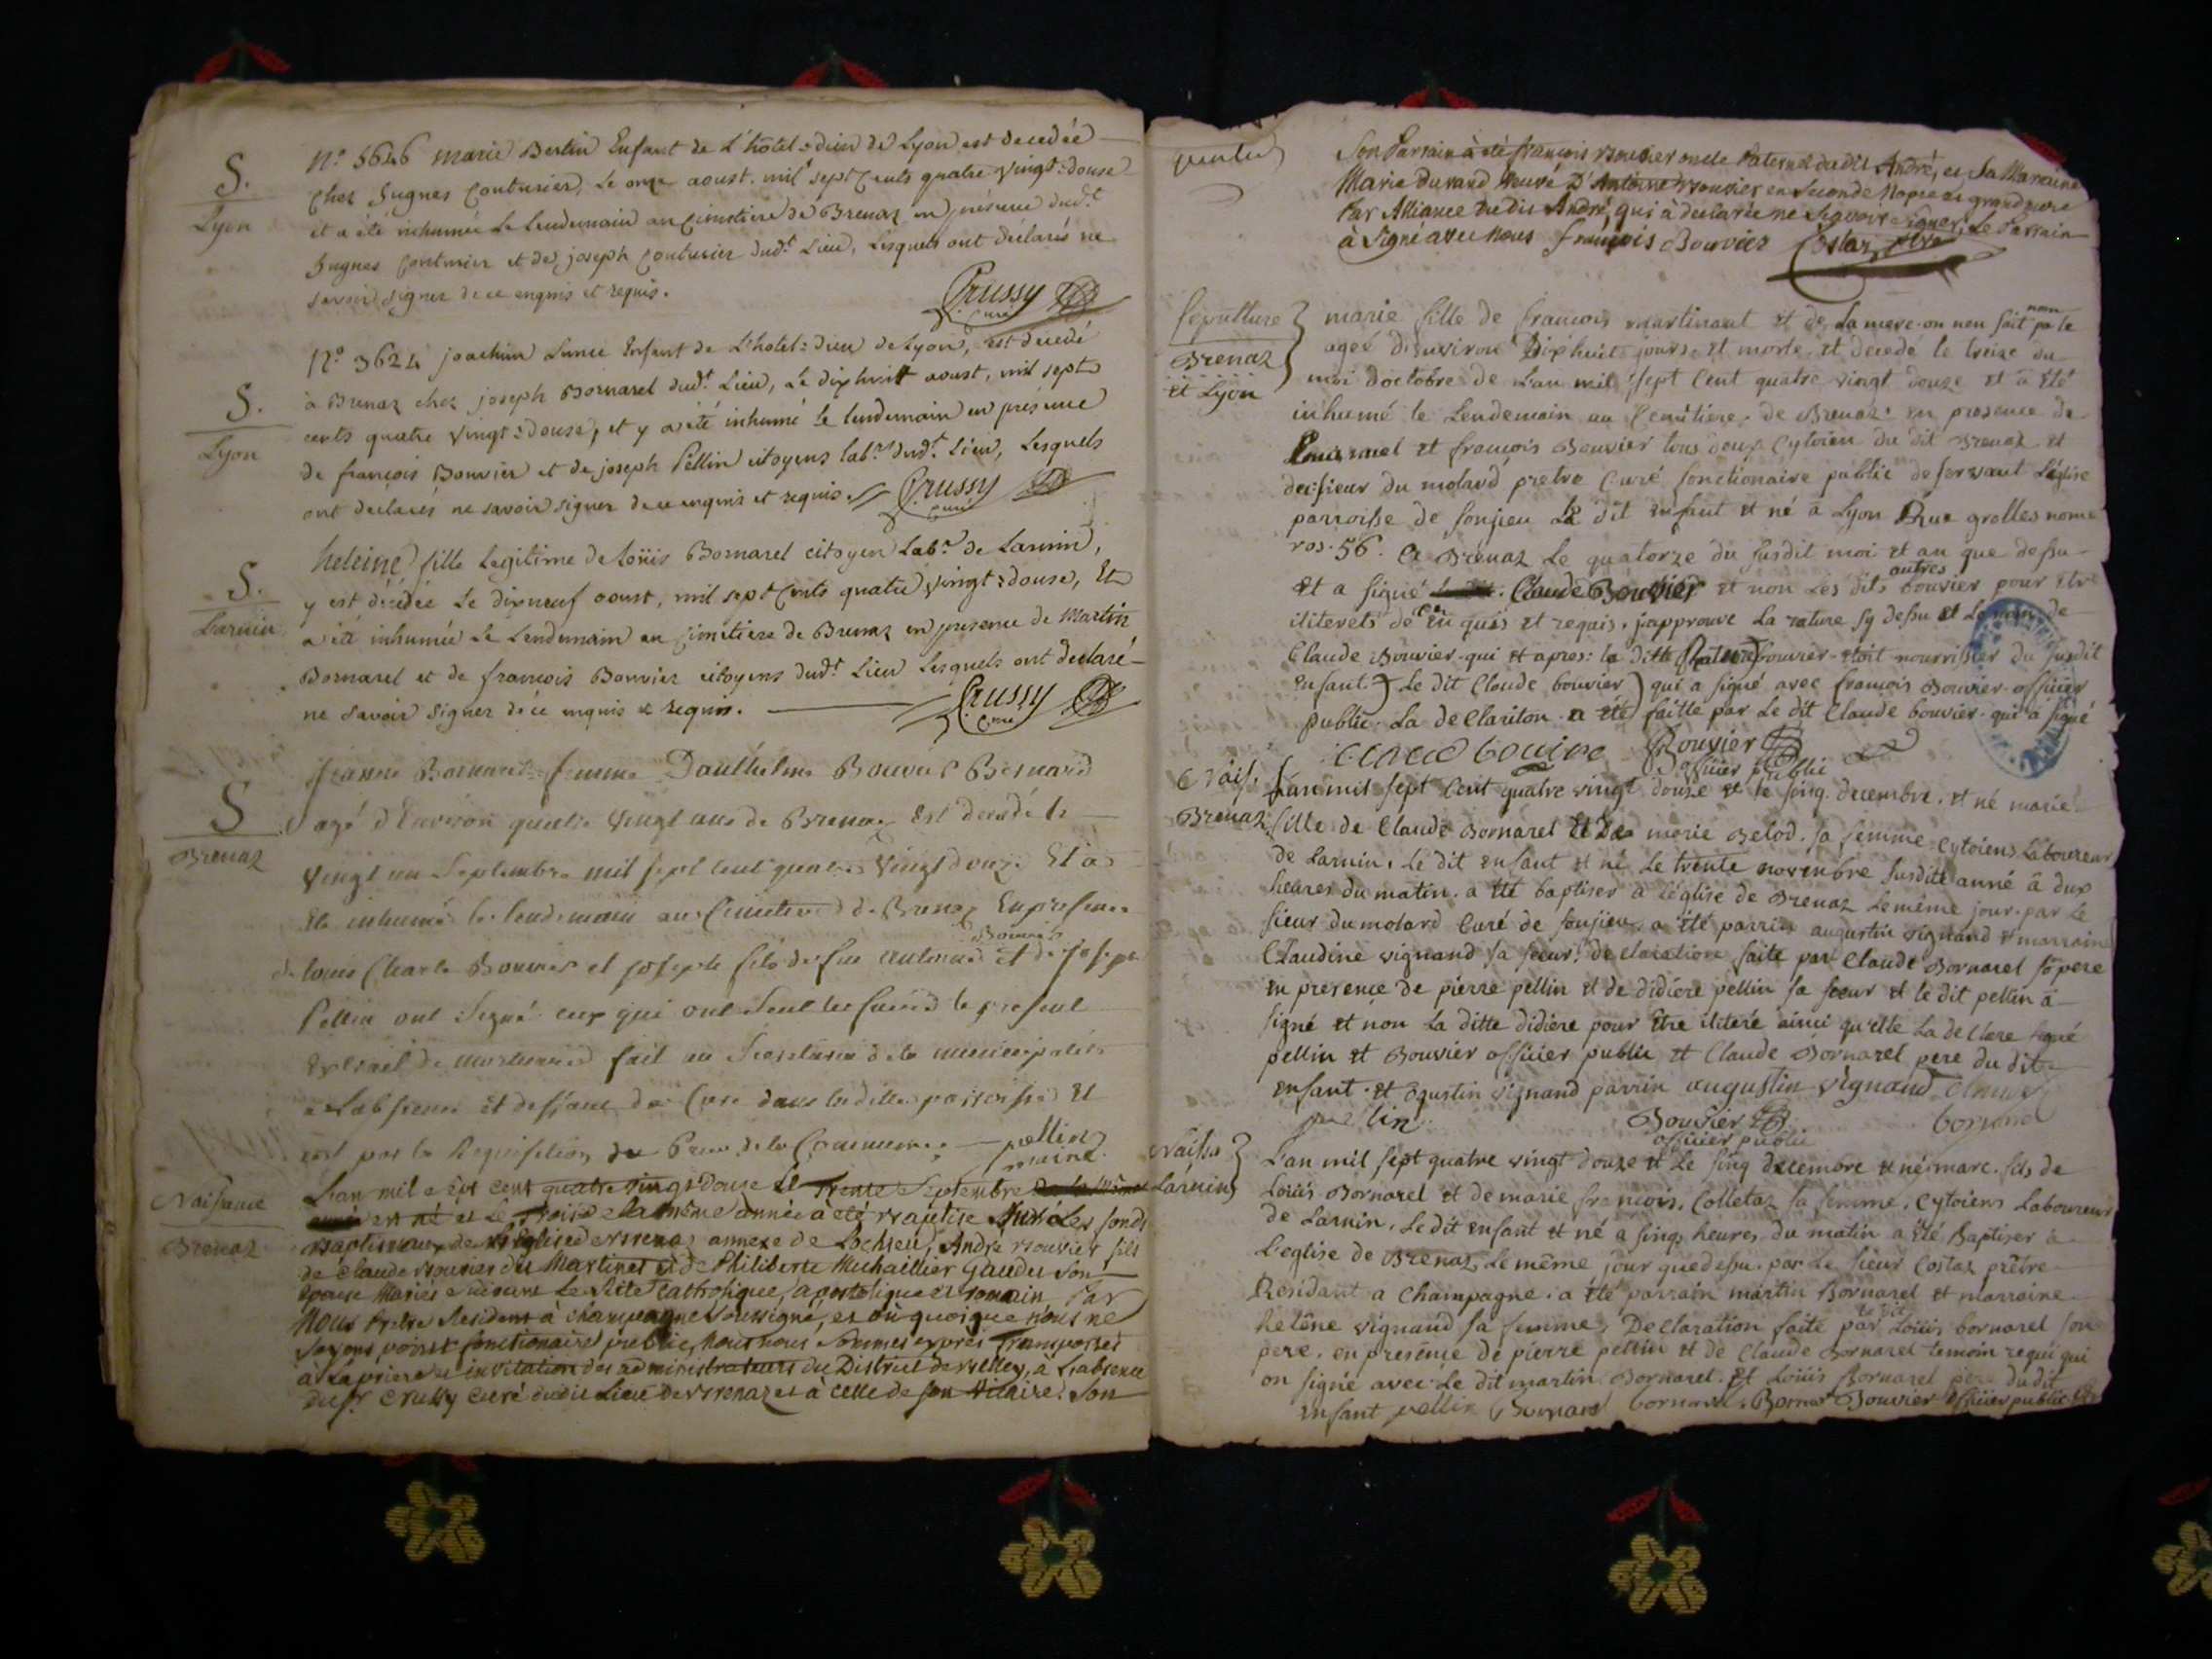 S.
Lyon
N.º 5646 marie Bertin Enfant de L'hôtel=dieu de Lyon est decedée
chez hugnes Couturier, Le onze aoust. mil sept Cents quatre vingt=douse
et a été inhumée Le Lendemain au Cimetiere de Brenaz en présence dud.t
hugnes Couturier et de joseph Couturier dud.t Lieu, Lesquels ont déclarés ne
savoir signer de ce enquis et requis.
Crussy
Curé
S.
Lyon
N.º 3624 joachim Lunie Enfant de L'hotel=dieu de Lyon, est decedé
à Brenaz chez joseph Bornarel dud.t Lieu, Le dixhuitt aoust, mil sept
cents quatre vingt=douse, et y a été inhumé le lendemain en présence
de françois Bouvier et de joseph Pellin citoyens lab.rs dud.t Lieu, Lesquels
ont declarés ne savoir signer de ce enquis et requis. Crussy
curé
S.
Larnin
heleine fille Legitime de Loüis Bornarel citoyen Lab.r de Larnin,
y est décédée Le dixneuf aoust, mil sept Cents quatre vingt=douse, Et
a été inhumée Le Lendemain au Cimetiere de Brenaz en presence de Martin
Bornarel et de francois Bouvier citoyens dud.t Lieu Lesquels ont declaré
ne savoir signer de ce enquis et requis. Crussy
Curé
S
Brenaz
femme Danthelme Bouvier Bernard
agé d'Environ quatre vingt ans de Brenaz Est decedé le
Vingt un Septembre mil sept cent quatre Vingt douze Et a
Ete inhumé le lendemain au Cimetiere de Brenaz En presence
de louis Charle Bouvier et joseph fils de feu antoine Bouvier Et de joseph
Pellin ont Signé ceux qui ont Seul le present
Extrait de mortuaire fait au Secretaria de la municipalité
a Labsence Et de Cure dans la ditte parroisse Et
par la Requisition du Procu. de la Commune pellin
maire
Naissance
Brenaz
L'an mil e sept cent quatre vingt douse Le Trente Septembre
est né et Le Trois la même année à eté Baptise sur Les fonds
Baptismaux de L'église de Brenaz annexe de Lochieu, André Bouvier fils
de Claude Bouvier du Martinet et de Philiberte Michaillier Gaudu Son
épouse Mariés suivant Le Rite Catholique, apostolique et romain Par
Nous Prêtre Resident à champagne Soussigné, et où quoique nous ne
Soyons point fonctionaire public, nous nous Sommes exprès Transportés
à La priere et invitation des administrateurs du District de Belley, à L'absence
du S.r Crussy curé dudit Lieu de Brenaz et à celle de Son Vicaire. Son
Son Parrain à été françois Bouvier oncle Paternel dudit André, et Sa Maraine
Marie Durand Veuve D'Antoine Bouvier en Seconde Nopce et grand mere
Par Alliance dudit André, qui à declarée ne Sçavoir Signer, Le Parrain
à Signé avec Nous françois Bouvier Costaz ptre
Sepulture
Brenaz
et Lyon
marie fille de francois martinant et de La mere on nen sait pa le nom
ageé denviron Dixhuit jours et morte et decedé le treize du
moi doctobre de Lan mil sept Cent quatre vingt douze et a Eté
inhumé le Lendemain au Cemitiere de Brenaz en presence de
et francois Bouvier tous deux Cytoien du dit Brenaz et
de sieur du molard pretre Curé fonctionaire public deservant Léglise
parroisse de Sonjieu Le dit enfant et né a Lyon Rue grolles nome
ros. 56. A Brénaz Le quatorze du susdit moi et an que dessu
et a signé Claude Bouvier et non Les dits autres bouvier pour etre
iliterets de ce en quis et requis. japprouve La rature sy dessu et Le nom de
Claude Bouvier qui et apres: la ditte bouvier etoit nourrissier du susdit
enfant. Le dit Claude bouvier qui a signé avec francois Bouvier officier
public. La declariton a eté faitte par Le dit Claude bouvier qui a signé
Claude bouvier Bouvier
officier public
Naiss.
Brenaz
Lan mil sept Cent quatre vingt douze et le sinq decembre. et né marie
fille de Claude Bornarel Et De marie Belod. sa femme Cytoiens Laboureur
de Larnin. Le dit enfant et né Le trente novembre susdite anné à dux
heures du matin. a eté baptiser a léglise de Brenaz Le même jour par Le
sieur du molard Curé de Sonjieu a été parrin augustin vignand et marraine
Claudine vignand sa sœur. declaration faite par Claude Bornarel so pere
en presence de pierre pellin et de didiere pellin sa sœur et le dit pellin à
signé et non La ditte didiere pour être ilitere ainci qu'elle La declere signé
pellin et Bouvier officier public et Claude Bornarel pere du dit
enfant. et ogustin vignand parrin augustin vignand Claude
pellin Bouvier bornarel
officier public
Naissa
Larnin
L'an mil sept quatre vingt douze et Le sinq decembre et né marc. fils de
Loüis Bornarel et de marie francois. Colletaz sa femme. Cytoiens Laboureur
de Larnin. Le dit enfant et né a sinq heures du matin a Eté Baptiser a
L'eglise de Brenaz. Le même jour que dessu. par Le sieur Costaz prêtre
Residant a Champagne. a été parrain martin Bornarel et marraine
helène vignand sa femme, Declaration faite par le dit Loüis bornarel son
pere. en presence de pierre pellin et de Claude Bornarel temoin requi qui
on signé avec Le dit martin Bornarel. et Loüis Bornarel pere du dit
enfant pellin Bornarel bornarel. Bornar Bouvier officier public